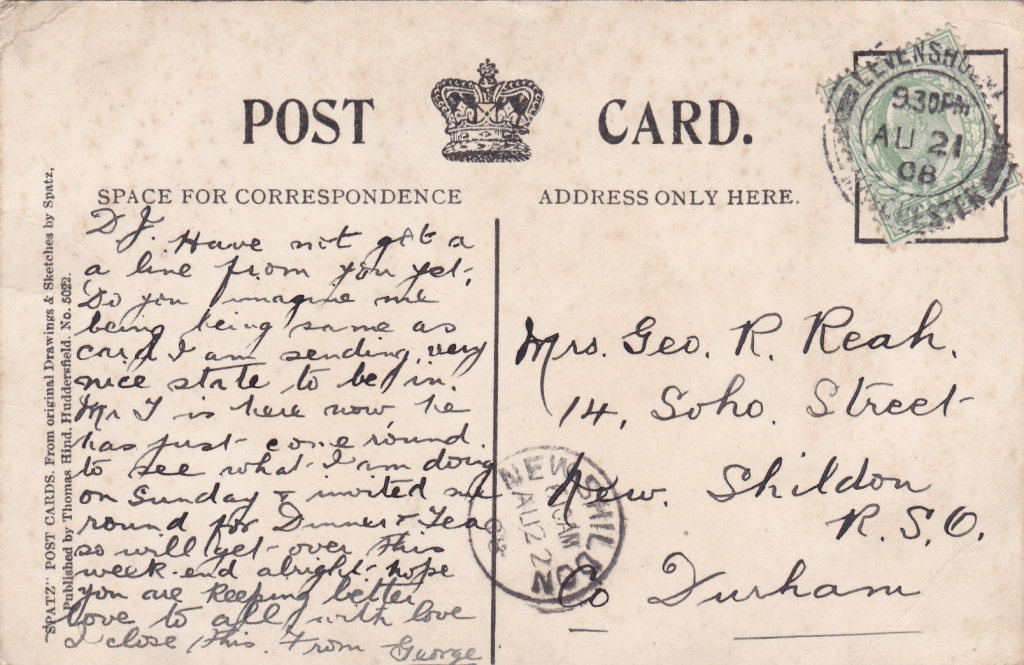 POST CARD.
SPACE FOR CORRESPONDENCE
ADDRESS ONLY HERE.
LEVENSHULME
9.30PM
AU 21
08
MANCHESTER
"SPATZ" POST CARDS. From original Drawings & Sketches by Spatz,
Published by Thomas Hind, Huddersfield. No. 5022.
D J. Have not got a
a line from you yet,
Do you imagine me
being being same as
card I am sending, very
nice state to be in.
Mr T is here now he
has just come round.
to see what I'm doing
on Sunday & invited me
round for Dinner & Tea
so will get over this
week-end alright hope
you are keeping better
love to all, with love
I close this. From George
Mrs. Geo. R. Reah.
14, Soho. Street
New. Shildon
R.S.O.
Co Durham
NEW SHILDON
AM
AU 22
08